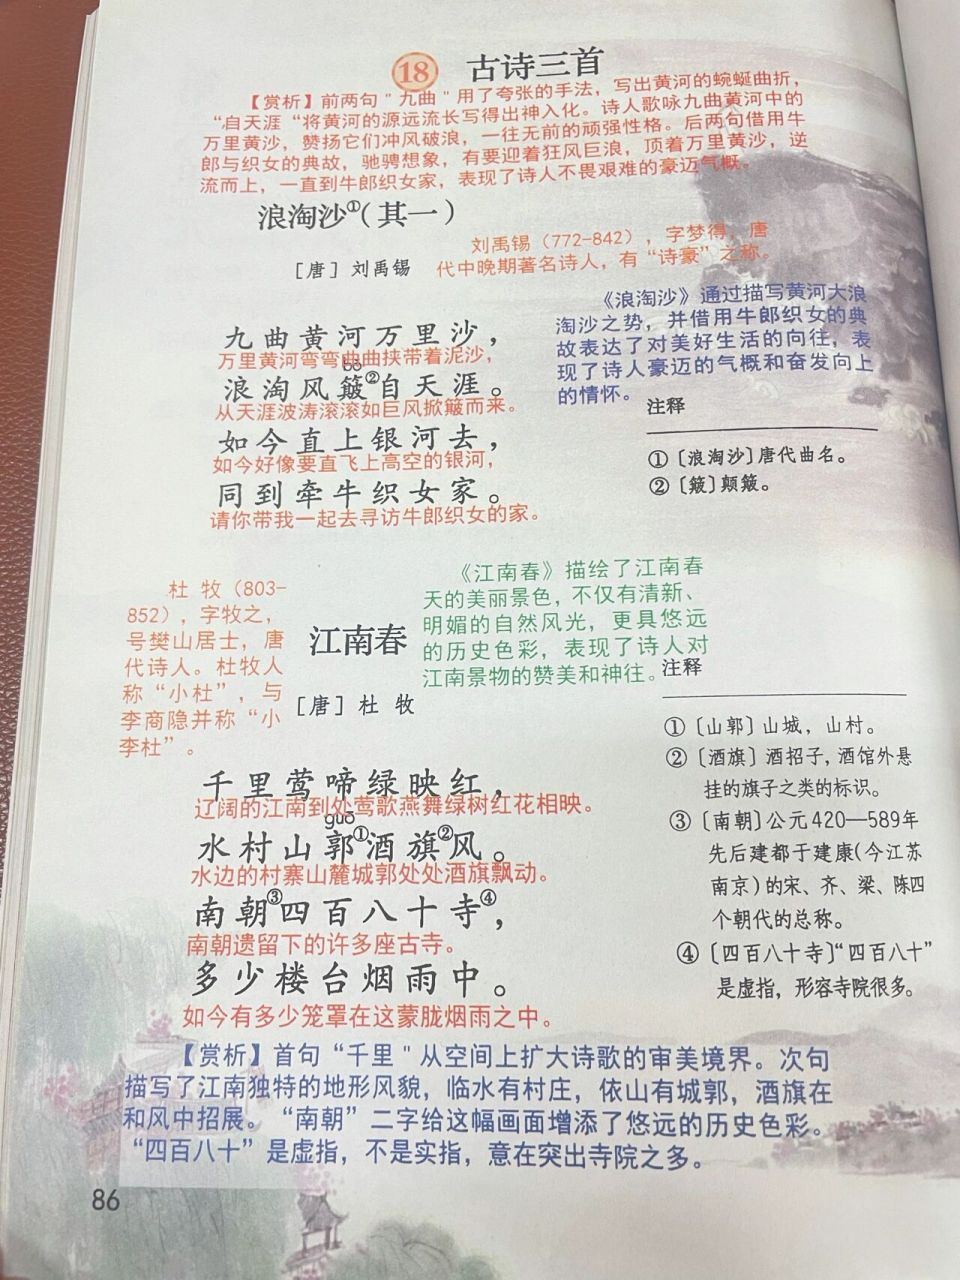 18 古诗三首
【赏析】前两句"九曲"用了夸张的手法，写出黄河的蜿蜒曲折，
“自天涯“将黄河的源远流长写得出神入化。诗人歌咏九曲黄河中的
万里黄沙，赞扬它们冲风破浪，一往无前的顽强性格。后两句借用牛
郎与织女的典故，驰骋想象，有要迎着狂风巨浪，顶着万里黄沙，逆
流而上，一直到牛郎织女家，表现了诗人不畏艰难的豪迈气概。
浪淘沙①(其一)
［唐］刘禹锡
刘禹锡（772-842），字梦得，唐
代中晚期著名诗人，有“诗豪”之称。
《浪淘沙》通过描写黄河大浪
淘沙之势，并借用牛郎织女的典
故表达了对美好生活的向往，表
现了诗人豪迈的气概和奋发向上
的情怀。
九曲黄河万里沙，
万里黄河弯弯曲曲挟带着泥沙，
bǒ
浪淘风簸②自天涯。
从天涯波涛滚滚如巨风掀簸而来。
如今直上银河去，
如今好像要直飞上高空的银河，
同到牵牛织女家。
请你带我一起去寻访牛郎织女的家。
注释
①〔浪淘沙〕唐代曲名。
②〔簸〕颠簸。
杜 牧（803-
852），字牧之，
号樊山居士，唐
代诗人。杜牧人
称“小杜”，与
李商隐并称“小
李杜”。
江南春
［唐］杜 牧
《江南春》描绘了江南春
天的美丽景色，不仅有清新、
明媚的自然风光，更具悠远
的历史色彩，表现了诗人对
江南景物的赞美和神往。
千里莺啼绿映红，
辽阔的江南到处莺歌燕舞绿树红花相映。
guō
水村山郭①酒旗②风。
水边的村寨山麓城郭处处酒旗飘动。
南朝③四百八十寺④，
南朝遗留下的许多座古寺。
多少楼台烟雨中。
如今有多少笼罩在这蒙胧烟雨之中。
注释
①〔山郭〕山城，山村。
②〔酒旗〕酒招子，酒馆外悬
挂的旗子之类的标识。
③〔南朝〕公元420—589年
先后建都于建康(今江苏
南京)的宋、齐、梁、陈四
个朝代的总称。
④〔四百八十寺〕“四百八十”
是虚指，形容寺院很多。
【赏析】首句“千里"从空间上扩大诗歌的审美境界。次句
描写了江南独特的地形风貌，临水有村庄，依山有城郭，酒旗在
和风中招展。“南朝”二字给这幅画面增添了悠远的历史色彩。
“四百八十”是虚指，不是实指，意在突出寺院之多。
86